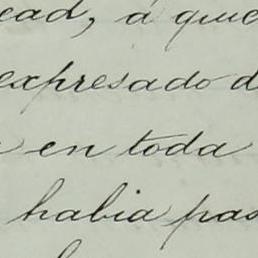 ead, á quie
expresado d
en toda
habia pas